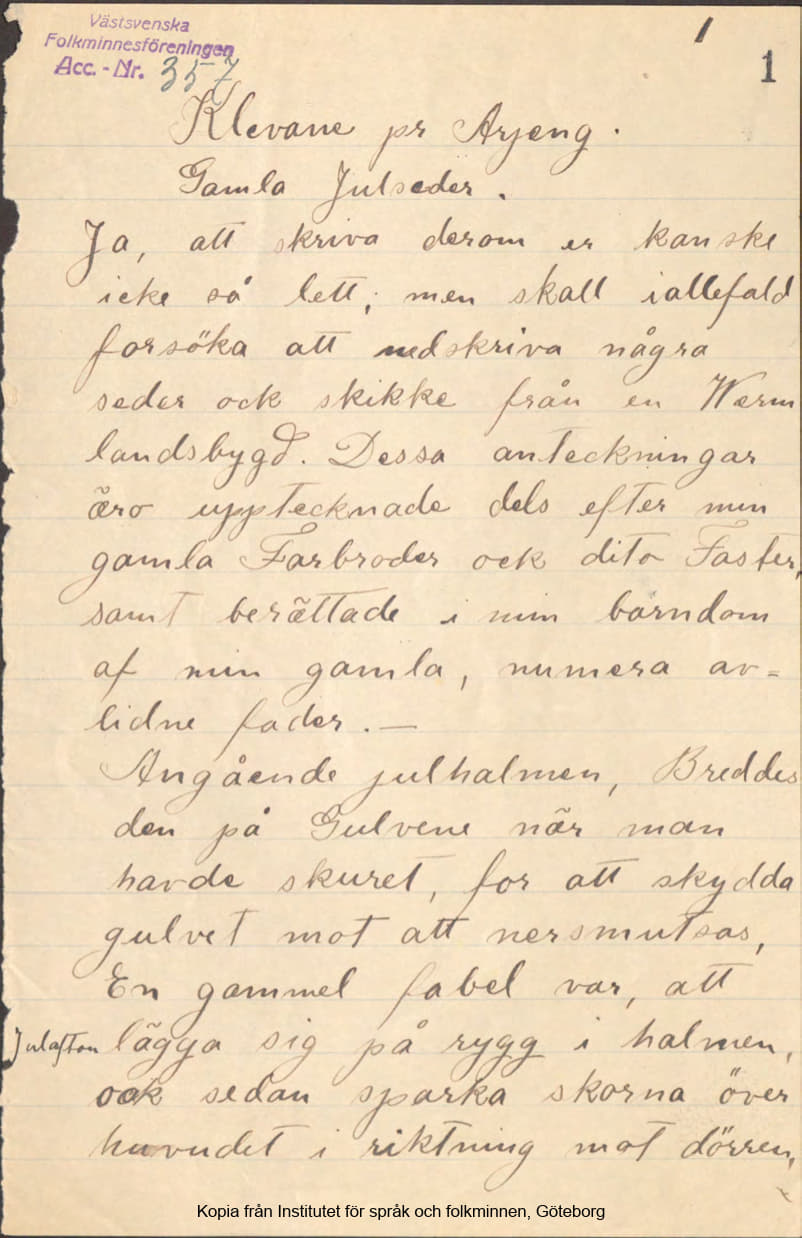 Västsvenska
Folkminnesföreningen
Acc.-Nr. 357
1
Klevane pr Arjeng.
Gamla Julseder.
Ja, att skriva derom er kanske
icke så lett, men skall iallefald
forsöka att nedskriva några
seder ock skikke från en Wærm
landsbygd. Dessa anteckningar
äro upptecknade dels efter min
gamla Farbroder ock dito Faster,
samt berättade i min barndom
af min gamla, numera av=
lidne fader. —
Angående julhalmen, Breddes
den på Gulvene når man
havde skuret, for att skydda
gulvet mot att nersmutsas,
En gammel fabel var, att
Julafton lägga sig på rygg i halmen,
ock sedan sparka skorna över
huvudet i riktning mot dörren,
Kopia från Institutet för språk och folkminnen, Göteborg